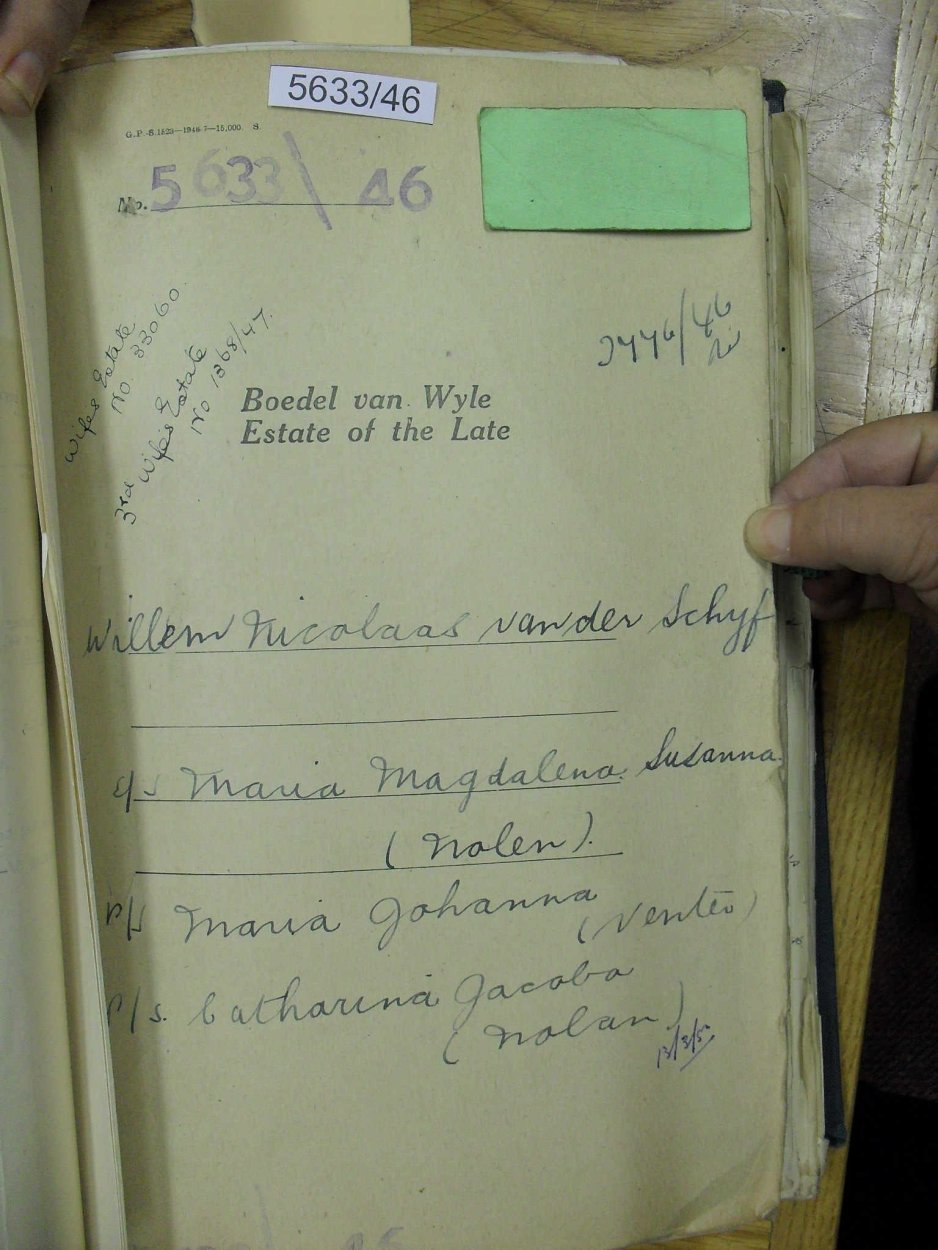 5633/46
G.P.-S.1523—1946-7—15,000. S.
No. 5633/46
Wifes Estate
No. 33060.
3rd Wife's Estate
No 1368/47.
Boedel van Wyle
Estate of the Late
Willem Nicolaas van der Schyf
Maria Magdalena Susanna
(Nolen).
Maria Johanna
(Venter)
p/s. Catharina Jacoba
(Nolan)